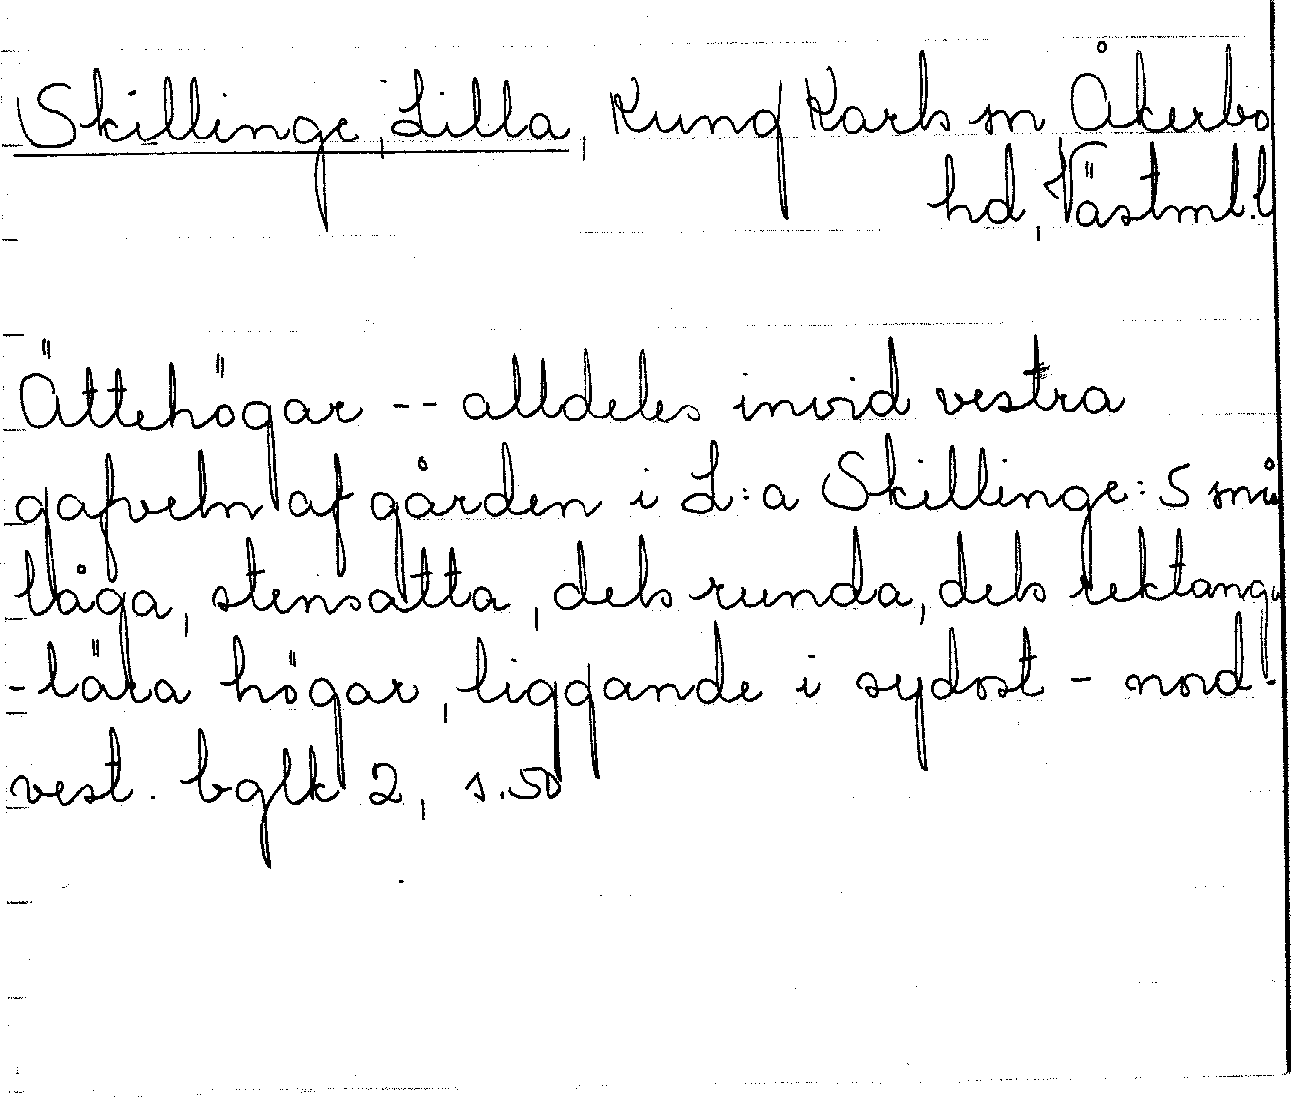 Skillinge, Lilla, Kung Karls sn Åkerbo
hd, Västml. l
Ättehögar -- alldeles invid vestra
gafveln af gården i L:a Skillinge: 5 små
låga, stensatta, dels runda, dels rektangu
-lära högar, liggande i sydost - nord-
vest. bglk 2, s.50